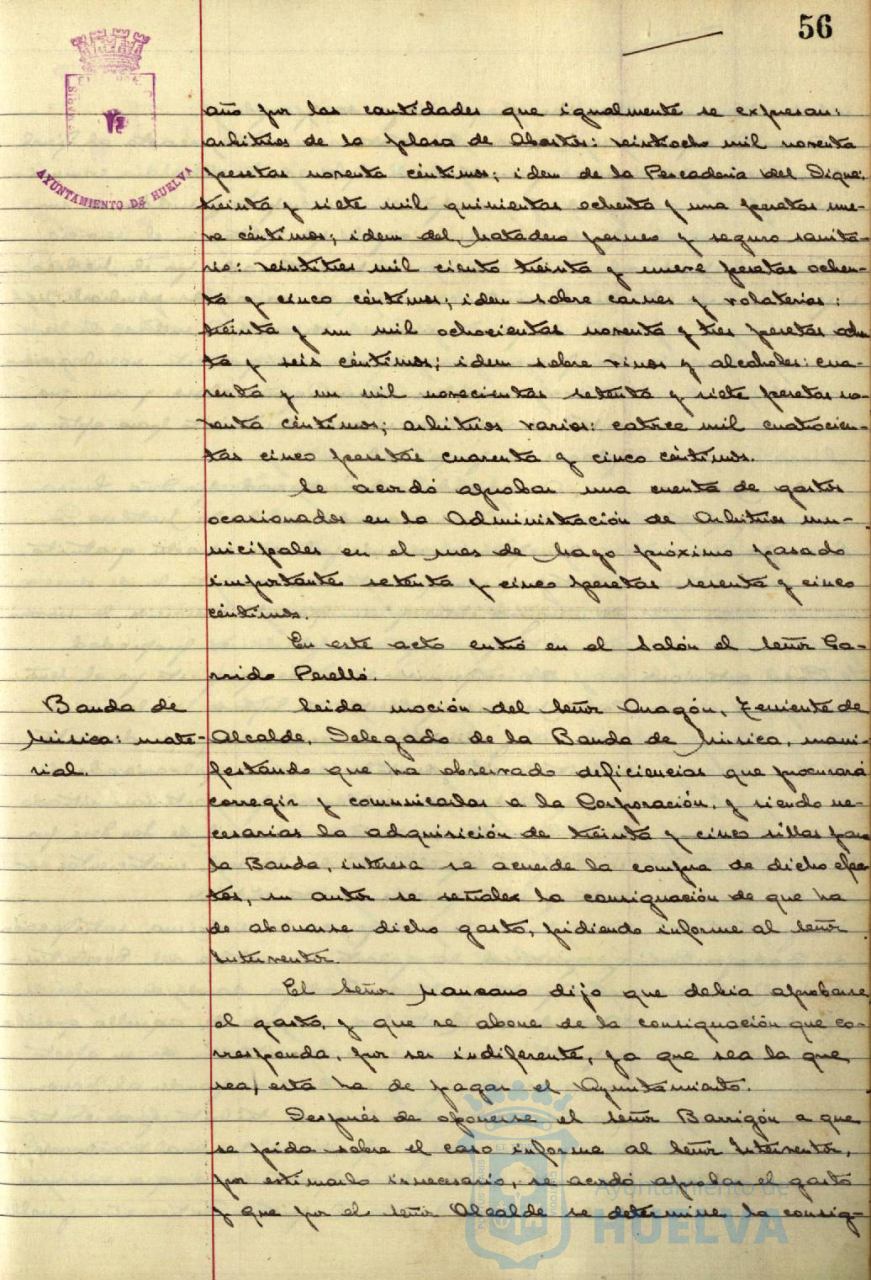 56
AYUNTAMIENTO DE HUELVA
año por las cantidades que igualmente se expresan:
arbitrios de la plaza de Abastos: veintiocho mil noventa
pesetas noventa céntimos; idem de la Pescaderia del Dique:
treinta y siete mil quinientas ochenta y una pesetas nue-
ve céntimos; idem del matadero perneo y seguro sanita-
rio: veintitres mil ciento treinta y nueve pesetas ochen-
ta y cinco céntimos; idem sobre carnes y volaterias:
treinta y un mil ochocientas noventa y tres pesetas
ta y seis céntimos; idem sobre vinos y alcoholes: cua-
renta y un mil novecientas setenta y siete pesetas no-
venta céntimos; arbitrios varios: catorce mil cuatrocien-
tas cinco pesetas cuarenta y cinco céntimos.
Se acordó aprobar una cuenta de gastos
ocasionados en la Administración de Arbitrios mu-
nicipales en el mes de Mayo próximo pasado
importante setenta y cinco pesetas sesenta y cinco
céntimos.
En este acto entró en el Salón el señor Ga-
rrido Perelló.
Banda de
Música: mate-
rial.
Leida moción del Señor Aragón, Teniente de
Alcalde, Delegado de la Banda de Música, mani-
festando que ha observado deficiencias que procurará
corregir y comunicadas a la Corporación, y siendo ne-
cesarias la adquisición de treinta y cinco sillas para
la Banda, interesa se acuerde la compra de dicho efec-
tos, su autor se señale la consignación de que ha
de abonarse dicho gasto, pidiendo informe al Señor
Interventor.
El Señor Manzano dijo que debia aprobarse
el gasto, y que se abone de la consignación que co-
rresponda, por ser indiferente, ya que sea la que
sea, esta ha de pagar el Ayuntamiento.
Después de oponerse el Señor Barrigón a que
se pida sobre el caso informe al Señor Interventor,
por estimarlo innecesario, se acordó aprobar el gasto
y que por el señor Alcalde se determine la consig-
Ayuntamiento de
HUELVA